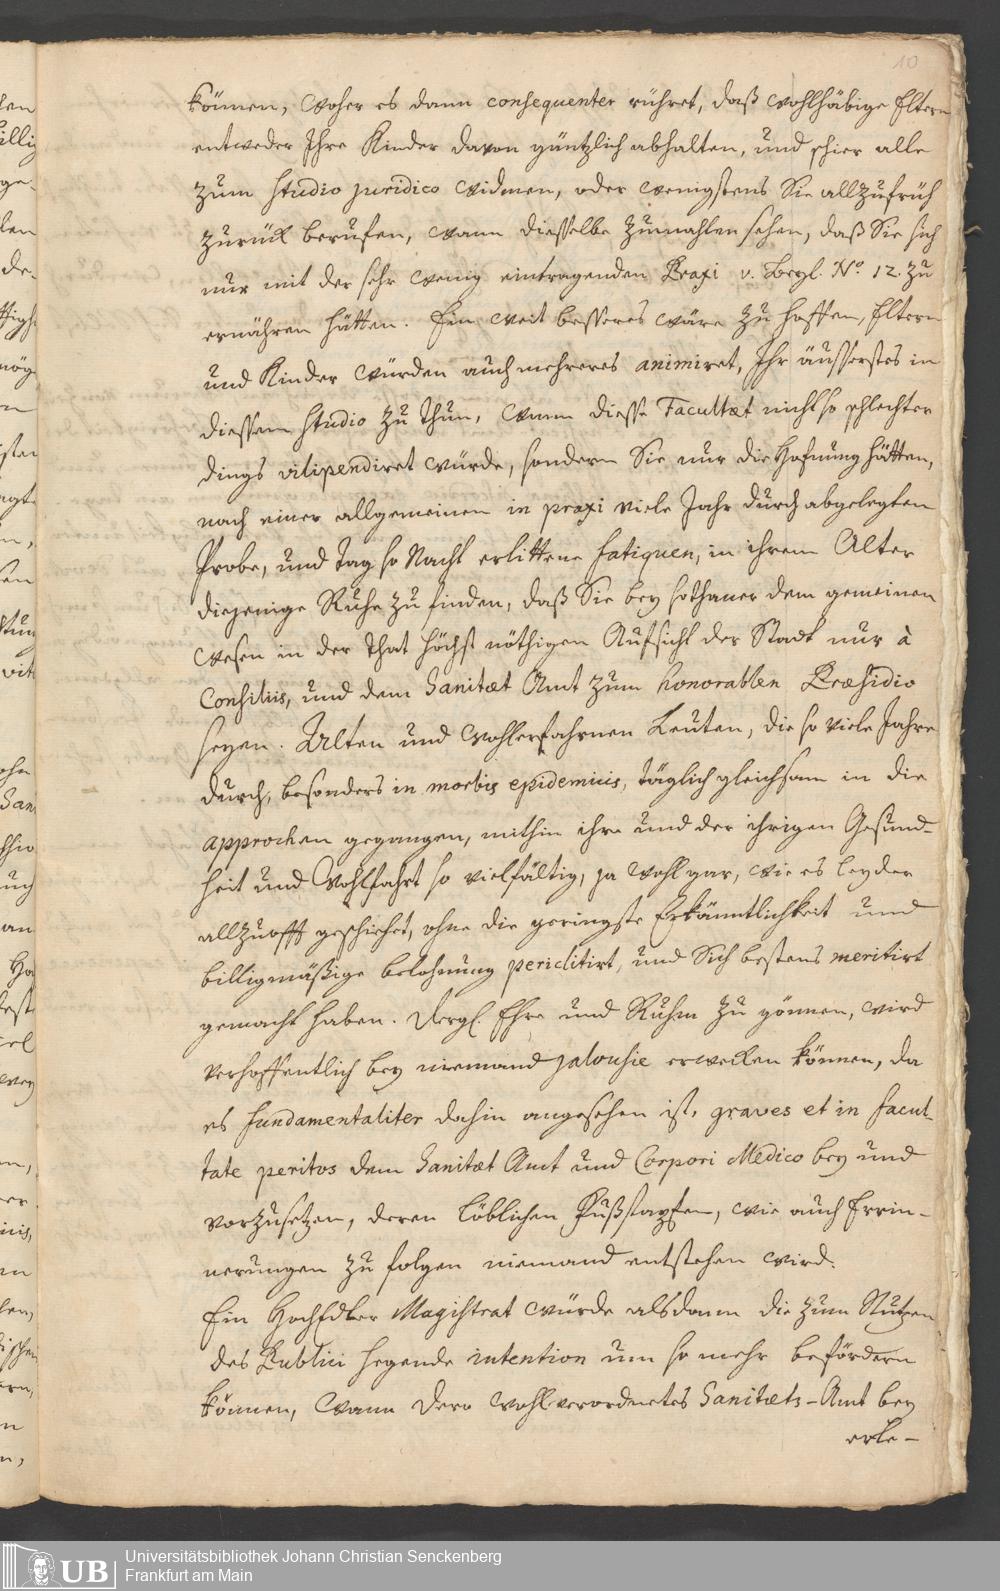 10
können, woher es dann consequenter rühret, daß wohlhäbige Eltern
entweder Ihre Kinder davon gäntzlich abhalten, und schier alle
zum studio juridico widmen, oder wenigstens Sie allzufrüh
zurück berufen, wann dieselbe zumahlen sehen, daß Sie sich
nur mit der sehr wenig eintragenden Praxi v. Beyl. No. 12. zu
ernähren hätten. Ein weit besseres wäre zu hoffen, Eltern
und Kinder würden auch mehreres animiret, Ihr äusserstes in
diessem studio zu thun, wann diesse Facultæt nicht so schlechter
dings vilipendiret würde, sondern Sie nur die Hofnung hätten,
nach einer allgemeinen in praxi viele Jahr durch abgelegten
Probe, und Tag so Nacht erlittene fatiquen, in ihrem Alter
diejenige Ruhe zu finden, daß Sie bey sothaner dem gemeinen
wesen in der That höchst nöthigen Aufsicht der Stadt nur à
Consiliis, und dem Sanitæt Amt zum honorablen Præsidio
seyen. Alten und wohlerfahrnen Leuten, die so viele Jahre
durch, besonders in morbis epidemicis, täglich gleichsam in die
approchen gegangen, mithin ihre und der ihrigen Gesund-
heit und Wohlfahrt so vielfältig, ja wohl gar, wie es leyder
allzuofft geschiehet, ohne die geringste Erkänntlichkeit und
billigmäßige belohnung periclitirt, und Sich bestens meritirt
gemacht haben. Dergl. Ehre und Ruhm zu gönnen, wird
verhoffentlich bey niemand jalousie erwecken können, da
es fundamentaliter dahin angesehen ist, graves et in facul-
tate peritos dem Sanitæt Amt und Corpori Medico bey und
vorzusetzen, deren löblichen Fußstapfen, wie auch Errin-
nerungen zu folgen niemand entstehen wird.
Ein HochEdler Magistrat würde alsdann die zum Nutzen
des Publici hegende intention um so mehr befördern
können, wann dero wohlverordnetes Sanitæts-Amt bey
erle-
UB
Universitätsbibliothek Johann Christian Senckenberg
Frankfurt am Main